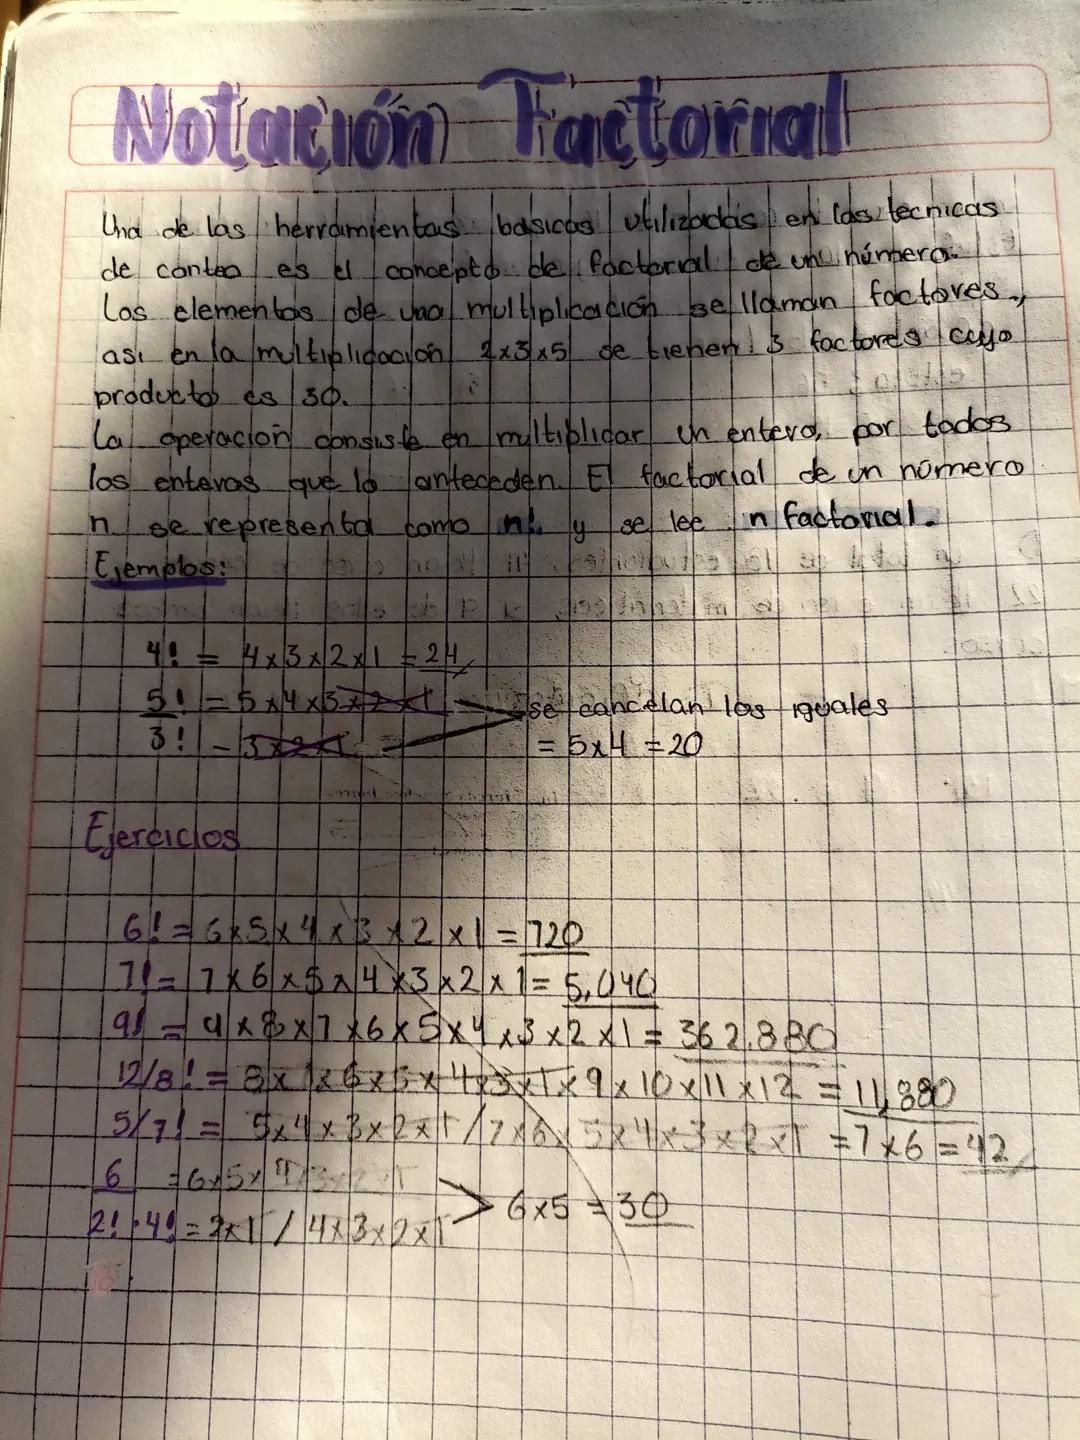 Notación Factorial
Una de las herramientas basicas utilizadas en las tecnicas
de conteo es el concepto de factorial de un número.
Los elementos de una multiplicación se llaman factores,
asi en la multiplicación 2x3x5 se tienen 3 factores cuyo
producto es 30.
La operación consiste en multiplicar un entero, por todos
los enteros que lo anteceden. El factorial de un número
n se representa como n! y se lee n factorial.
Ejemplos:
4! = 4x3x2x1 = 24
5! = 5x4x3x2x1 se cancelan los iguales
3! - 3x2x1 = 5x4 = 20
Ejercicios
6! = 6x5x4x3x2x1 = 720
7! = 7x6x5x4x3x2x1 = 5,040
9! = 9x8x7x6x5x4x3x2x1 = 362.880
12/8! = 8x7x6x5x4x3x1x9x10x11x12 = 11,880
5/7! = 5x4x3x2x1/7x6x5x4x3x2x1 = 7x6 = 42
6 = 6x5x4x3x2x1
2!·4! = 2x1/4x3x2x1 > 6x5 = 30